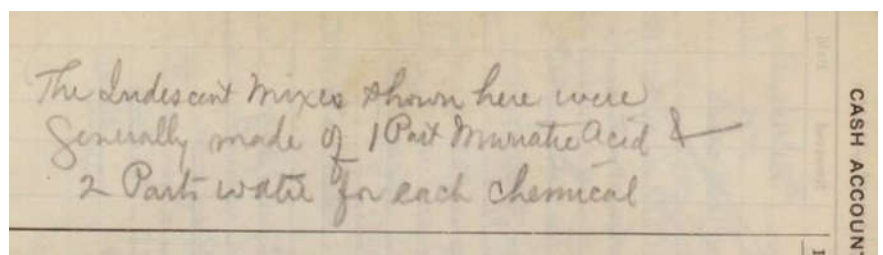 The Iridescent Mixes shown here were
Generally made of 1 Part Muriatic Acid &
2 Parts water for each chemical
CASH ACCOUNT